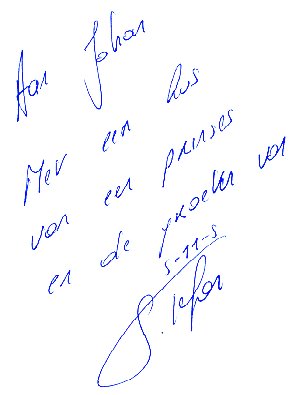 Aan Johan
Met een kus
van een prinses
en de groeten van
5-11-5